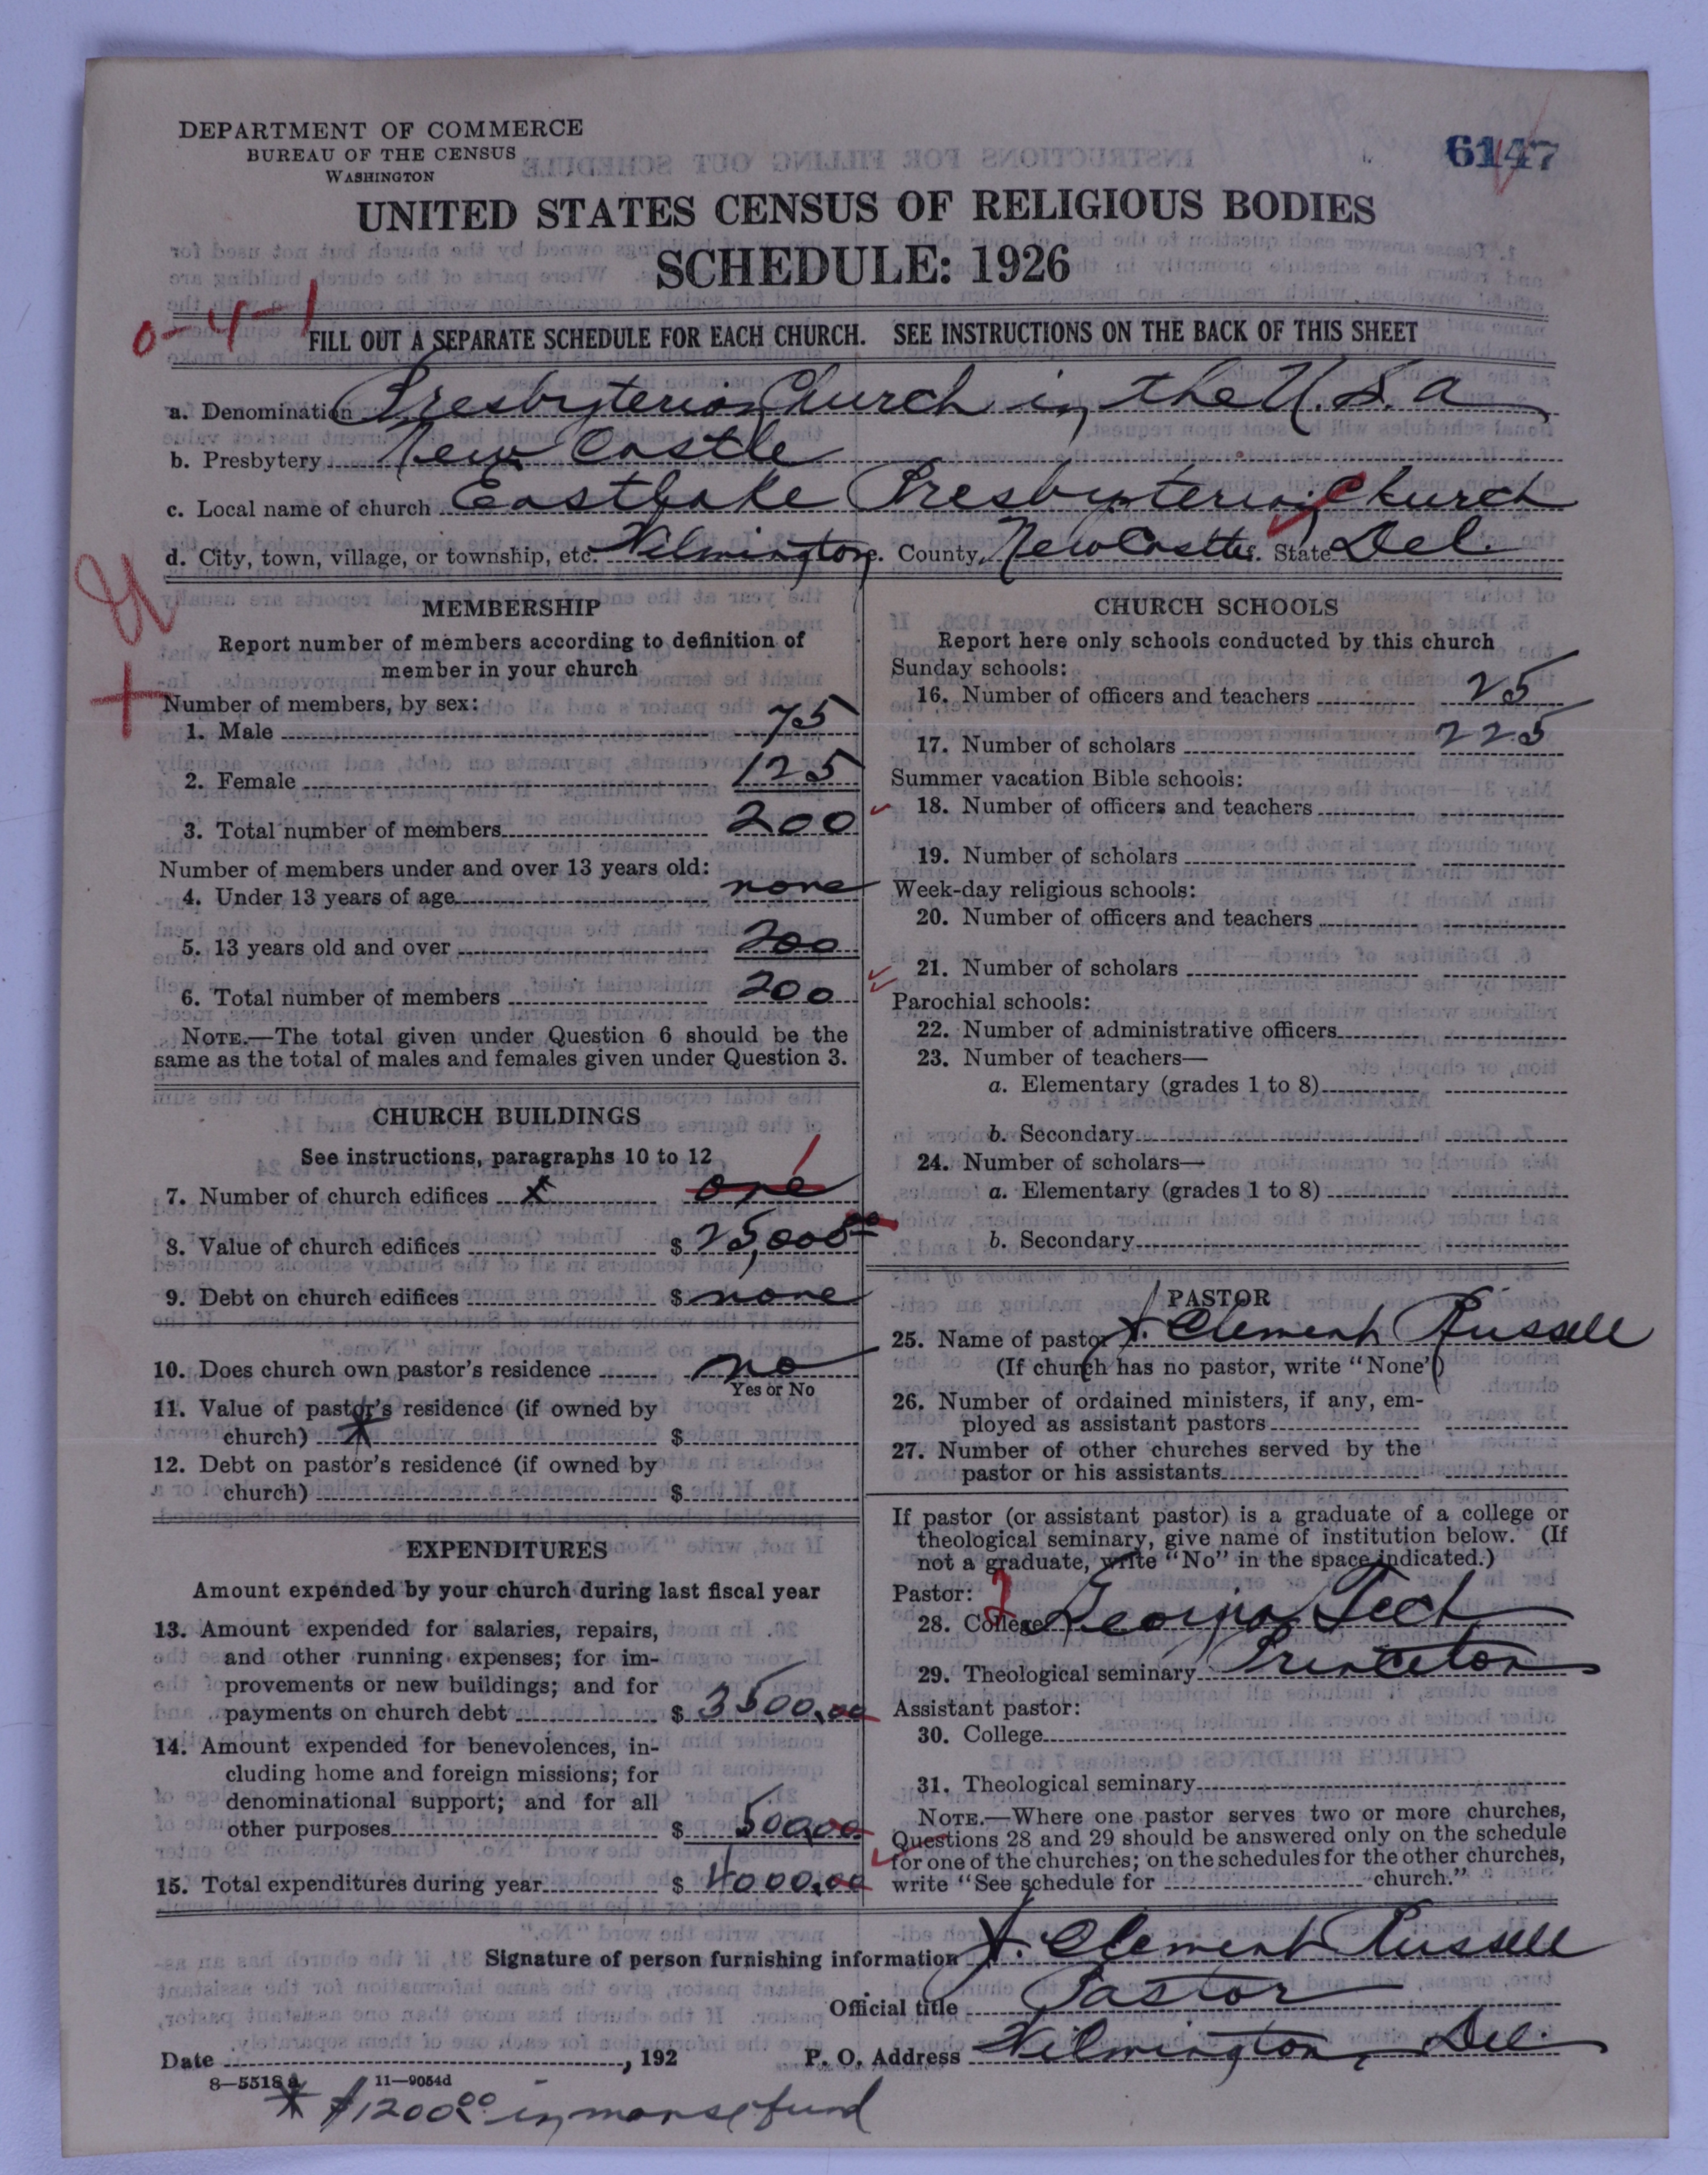 DEPARTMENT OF COMMERCE
BUREAU OF THE CENSUS
WASHINGTON
6147
UNITED STATES CENSUS OF RELIGIOUS BODIES
SCHEDULE: 1926
0-4-1
FILL OUT A SEPARATE SCHEDULE FOR EACH CHURCH. SEE INSTRUCTIONS ON THE BACK OF THIS SHEET
a. Denomination Presbyterian Church in the U.S.A
b. Presbytery New Castle
c. Local name of church Eastlake Presbyterian Church
d. City, town, village, or township, etc. Wilmington. County, New Castle. State Del.
MEMBERSHIP
Report number of members according to definition of
member in your church
Number of members, by sex:
1. Male 75
2. Female 125
3. Total number of members 200
Number of members under and over 13 years old:
4. Under 13 years of age none
5. 13 years old and over 200
6. Total number of members 200
NOTE.—The total given under Question 6 should be the
same as the total of males and females given under Question 3.
CHURCH BUILDINGS
See instructions, paragraphs 10 to 12
7. Number of church edifices x one
8. Value of church edifices $ 25,000 00
9. Debt on church edifices $ none
10. Does church own pastor's residence no
Yes or No
11. Value of pastor's residence (if owned by
church) * $
12. Debt on pastor's residence (if owned by
church) $
EXPENDITURES
Amount expended by your church during last fiscal year
13. Amount expended for salaries, repairs,
and other running expenses; for im-
provements or new buildings; and for
payments on church debt $ 3500.00
14. Amount expended for benevolences, in-
cluding home and foreign missions; for
denominational support; and for all
other purposes $ 500.00
15. Total expenditures during year $ 4000.00
CHURCH SCHOOLS
Report here only schools conducted by this church
Sunday schools:
16. Number of officers and teachers 25
17. Number of scholars 225
Summer vacation Bible schools:
18. Number of officers and teachers
19. Number of scholars
Week-day religious schools:
20. Number of officers and teachers
21. Number of scholars
Parochial schools:
22. Number of administrative officers
23. Number of teachers—
a. Elementary (grades 1 to 8)
b. Secondary
24. Number of scholars—
a. Elementary (grades 1 to 8)
b. Secondary
PASTOR
25. Name of pastor Clement Russell
(If church has no pastor, write "None")
26. Number of ordained ministers, if any, em-
ployed as assistant pastors
27. Number of other churches served by the
pastor or his assistants
If pastor (or assistant pastor) is a graduate of a college or
theological seminary, give name of institution below. (If
not a graduate, write "No" in the space indicated.)
Pastor:
28. College Georgia Tech
29. Theological seminary Princeton
Assistant pastor:
30. College
31. Theological seminary
NOTE.—Where one pastor serves two or more churches,
Questions 28 and 29 should be answered only on the schedule
for one of the churches; on the schedules for the other churches,
write "See schedule for church."
Signature of person furnishing information Clement Russell
Official title Pastor
Date , 192 P. O. Address Wilmington, Del.
8—5518 a 11—9054d
* $1200.00 in manse fund